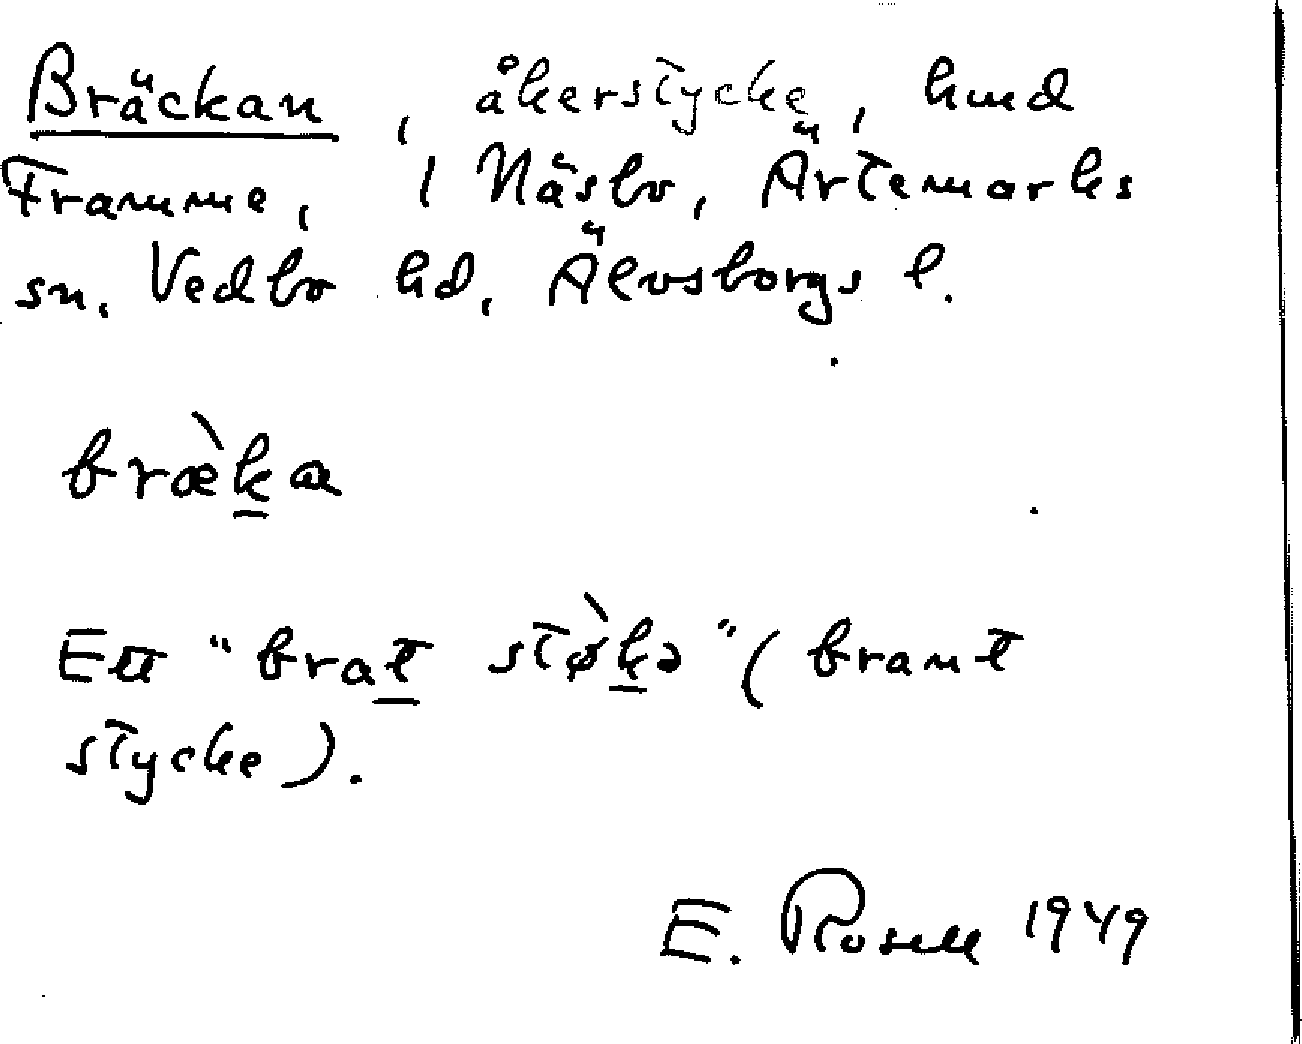 Bräckan, åkerstycke, hmd
Framme, i Näsbo, Ärtemarks
sn. Vedbo hd, Älvsborgs l.
bræ̀k̲a
Ett "brat̲ stø̀k̲ə" (brant
stycke).
E. Rosell 1949